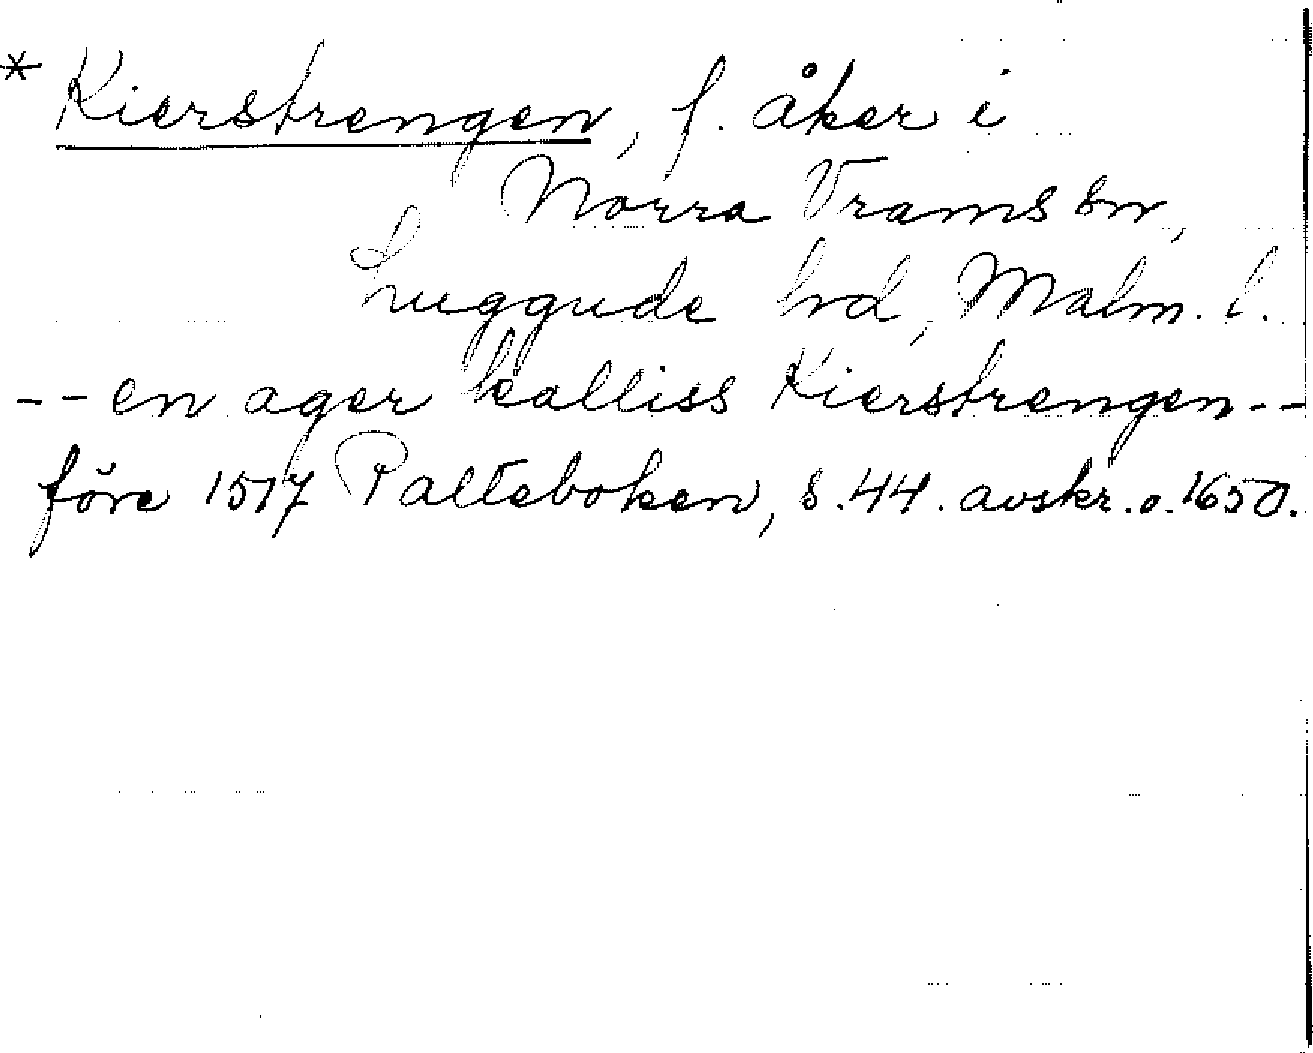 * Kierstrengen, f. åker i
Norra Vrams sn,
Luggude hd, Malm. l.
-- en ager kalliss Kierstrengen --
före 1517 Palteboken, s. 44. avskr. o. 1650.